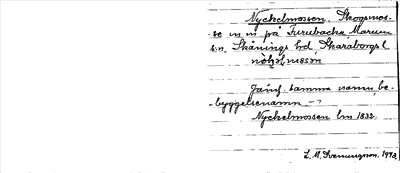 Nyckelmossen, Skogsmos-
se m m på Furubacka, Marum
s:n, Skånings hd, Skaraborgs l
Jämf. samma namn, be-
byggelsenamn
Nyckelmossen lm 1832
L. M. Svenungson. 1973.